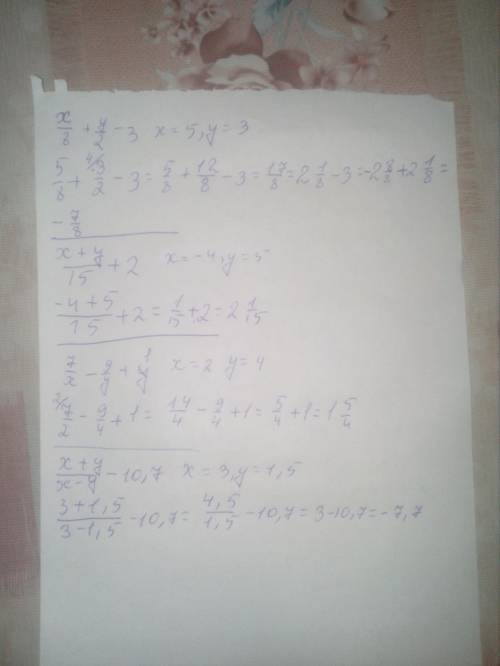 x/8 + y/2 - 3 x = 5, y = 3
5/8 + 4/3/2 - 3 = 5/8 + 12/8 - 3 = 17/8 = 2 1/8 - 3 = -2 8/8 + 2 1/8 =
- 7/8
x+y/15 + 2 x = -4, y = 5
-4+5/15 + 2 = 1/15 + 2 = 2 1/15
7/x - 9/y + 1 x = 2 y = 4
2/7/2 - 9/4 + 1 = 14/4 - 9/4 + 1 = 5/4 + 1 = 1 5/4
x+y/x-y - 10,7 x = 3, y = 1,5
3+1,5/3-1,5 - 10,7 = 4,5/1,5 - 10,7 = 3 - 10,7 = -7,7